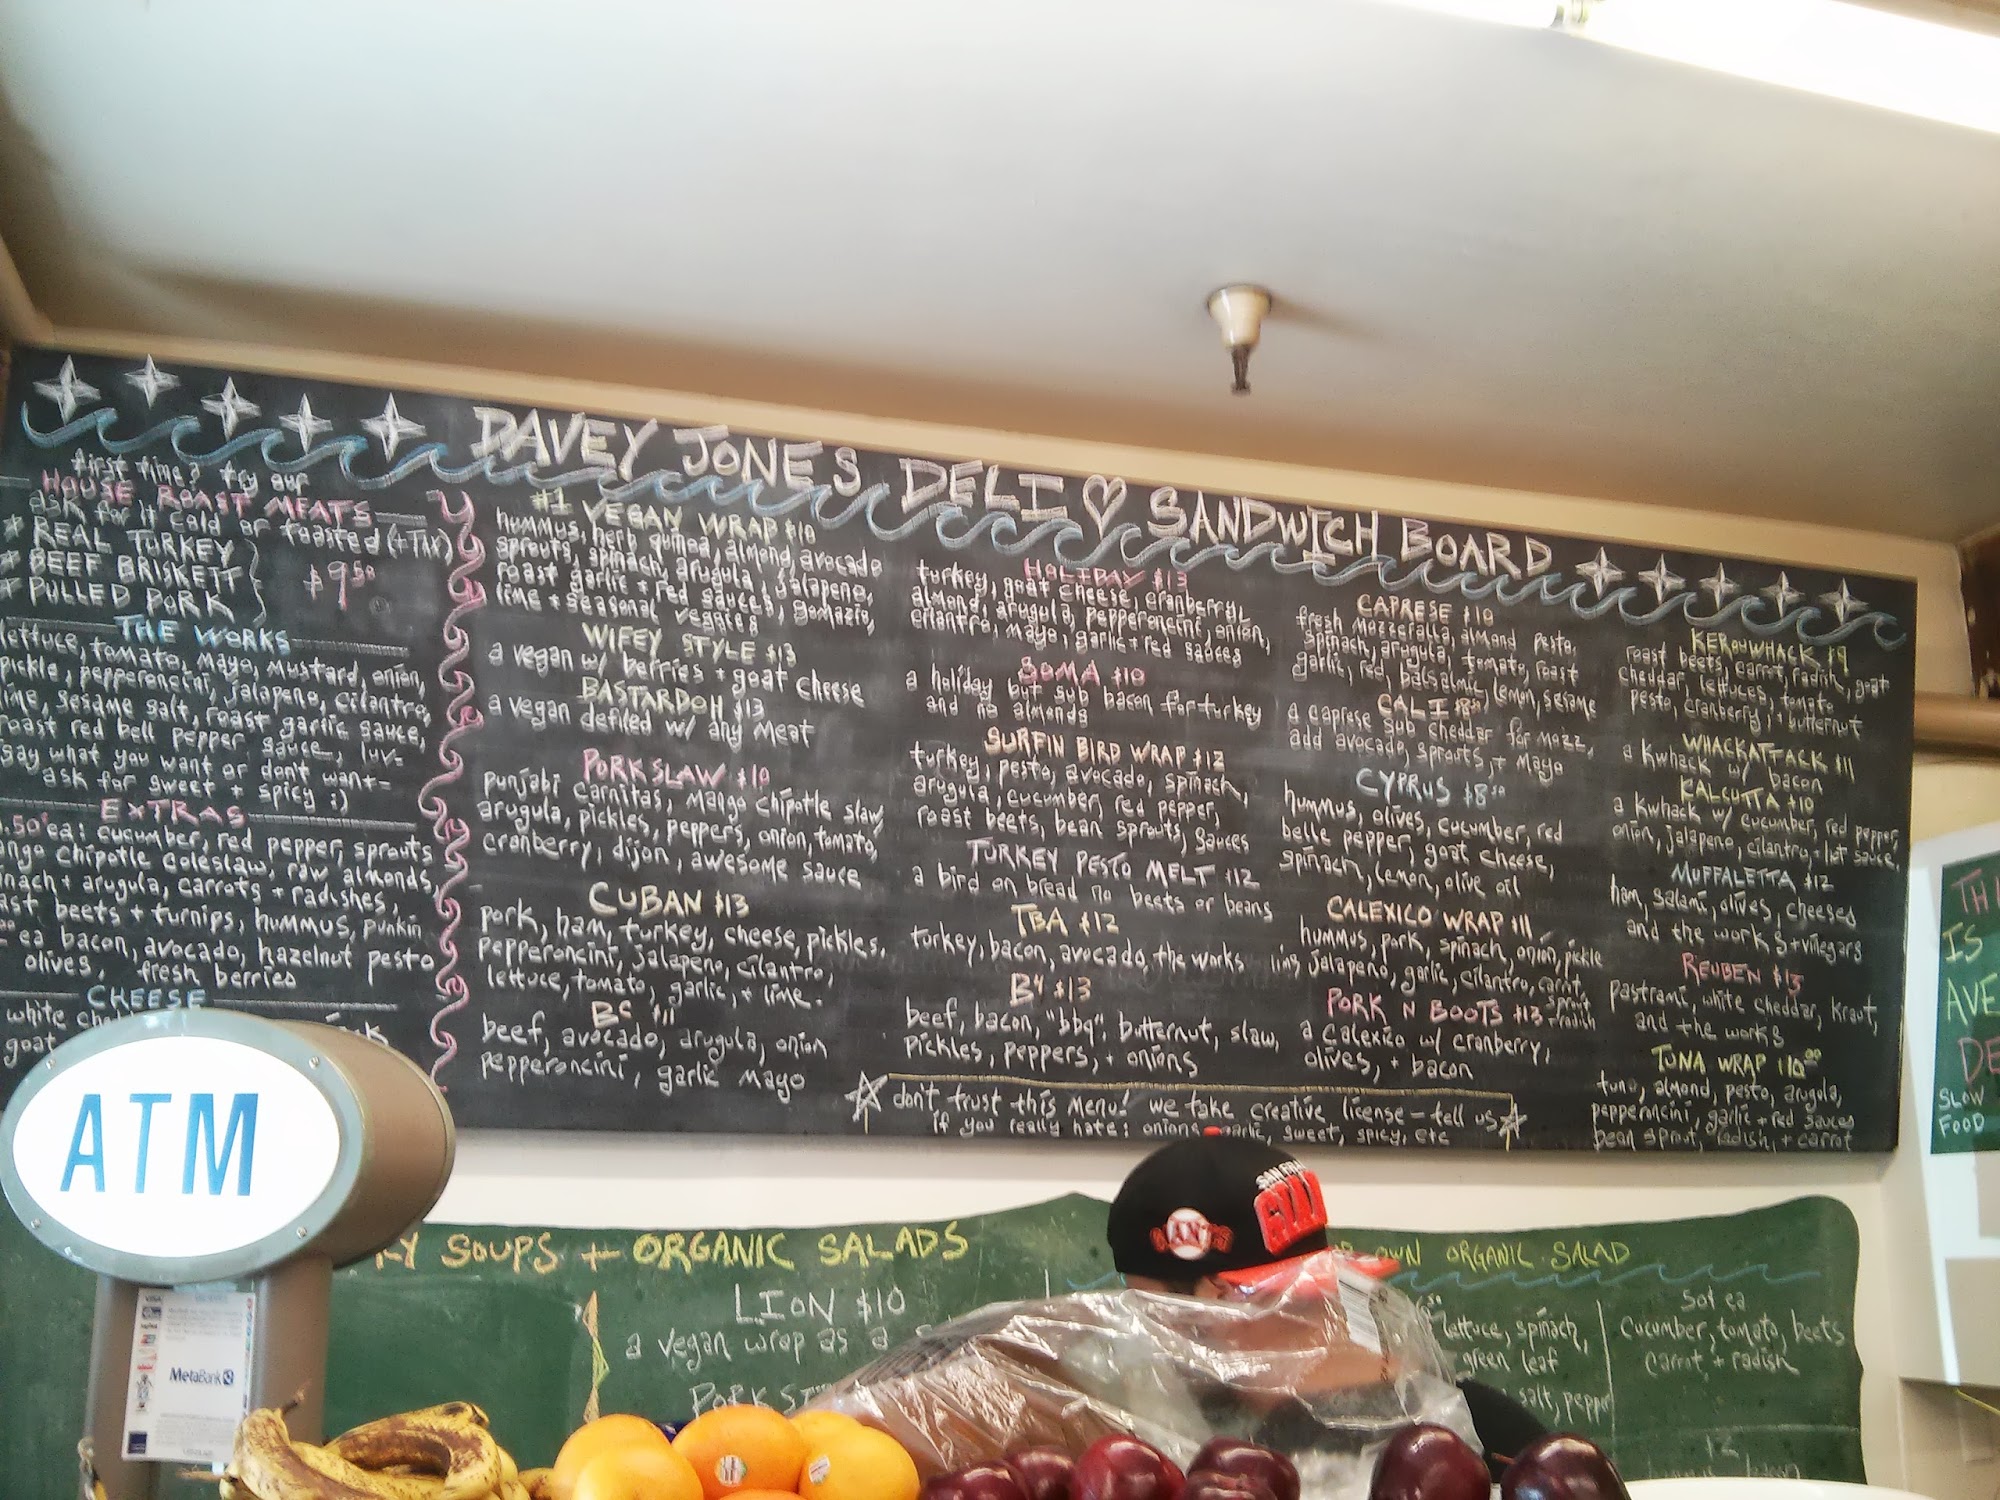 DAVEY JONES DELI SANDWICH BOARD
first time? try our
HOUSE ROAST MEATS
ask for it cold or toasted (+TAX)
* REAL TURKEY
* BEEF BRISKETT
* PULLED PORK
$9.50
THE WORKS
lettuce, tomato, mayo, mustard, onion,
pickle, pepperoncini, jalapeno, cilantro,
lime, sesame salt, roast garlic sauce,
roast red bell pepper sauce, luv-
say what you want or don't want-
ask for sweet + spicy ;)
EXTRAS
.50 ea: cucumber, red pepper, sprouts
chipotle coleslaw, raw almonds,
+ arugula, carrots + radishes,
beets + turnips, hummus, punkin
ea bacon, avocado, hazelnut pesto
olives, fresh berries
CHEESE
white
goat
#1 VEGAN WRAP $10
hummus, herb quinoa, almond, avocado
sprouts, spinach, arugula, jalapeno,
roast garlic + red sauces, gomazio,
lime + seasonal veggies
WIFEY STYLE $13
a vegan w/ berries + goat cheese
BASTARDOH $13
a vegan defiled w/ any meat
PORK SLAW $10
punjabi carnitas, mango chipotle slaw,
arugula, pickles, peppers, onion, tomato,
cranberry, dijon, awesome sauce
CUBAN $13
pork, ham, turkey, cheese, pickles,
pepperoncini, jalapeno, cilantro,
lettuce, tomato, garlic, + lime.
BC $11
beef, avocado, arugula, onion
pepperoncini, garlic mayo
HOLIDAY $13
turkey, goat cheese, cranberry,
almond, arugula, pepperoncini, onion,
cilantro, mayo, garlic + red sauces
SOMA $10
a holiday but sub bacon for turkey
and no almonds
SURFIN BIRD WRAP $12
turkey, pesto, avocado, spinach,
arugula, cucumber, red pepper,
roast beets, bean sprouts, sauces
TURKEY PESTO MELT $12
a bird on bread no beets or beans
TBA $12
turkey, bacon, avocado, the works
B4 $13
beef, bacon, "bbq", butternut, slaw,
pickles, peppers, + onions
CAPRESE $10
fresh mozzeralla, almond pesto,
spinach, arugula, tomato, roast
garlic, red, balsalmic, lemon, sesame
CALI $8.50
a caprese sub cheddar for mozz,
add avocado, sprouts, + mayo
CYPRUS $8.50
hummus, olives, cucumber, red
belle pepper, goat cheese,
spinach, lemon, olive oil
CALEXICO WRAP $11
hummus, pork, spinach, onion, pickle
lime, jalapeno, garlic, cilantro, carrot,
sprout
+ radish
PORK N BOOTS $13
a calexico w/ cranberry,
olives, + bacon
KEROUWHACK $9
roast beets, carrot, radish, goat
cheddar, lettuces, tomato
pesto, cranberry, + butternut
WHACKATTACK $11
a kwhack w/ bacon
KALCUTTA $10
a kwhack w/ cucumber, red pepper,
onion, jalapeno, cilantro, + hot sauce,
MUFFALETTA $12
ham, salami, olives, cheeses
and the works + vinegars
REUBEN $13
pastrami, white cheddar, kraut,
and the works
TUNA WRAP $10.00
tuna, almond, pesto, arugula,
pepperoncini, garlic + red sauces
bean sprout, radish, + carrot
don't trust this menu! we take creative license - tell us
if you really hate: onions, garlic, sweet, spicy, etc
ATM
VISA
MetaBank
SOUPS + ORGANIC SALADS
LION $10
a vegan wrap as a
PORK
OWN ORGANIC SALAD
lettuce, spinach,
green leaf
salt, pepper
50¢ ea
cucumber, tomato, beets
carrot + radish
13
SAN FRAN
IS
SLOW
FOOD